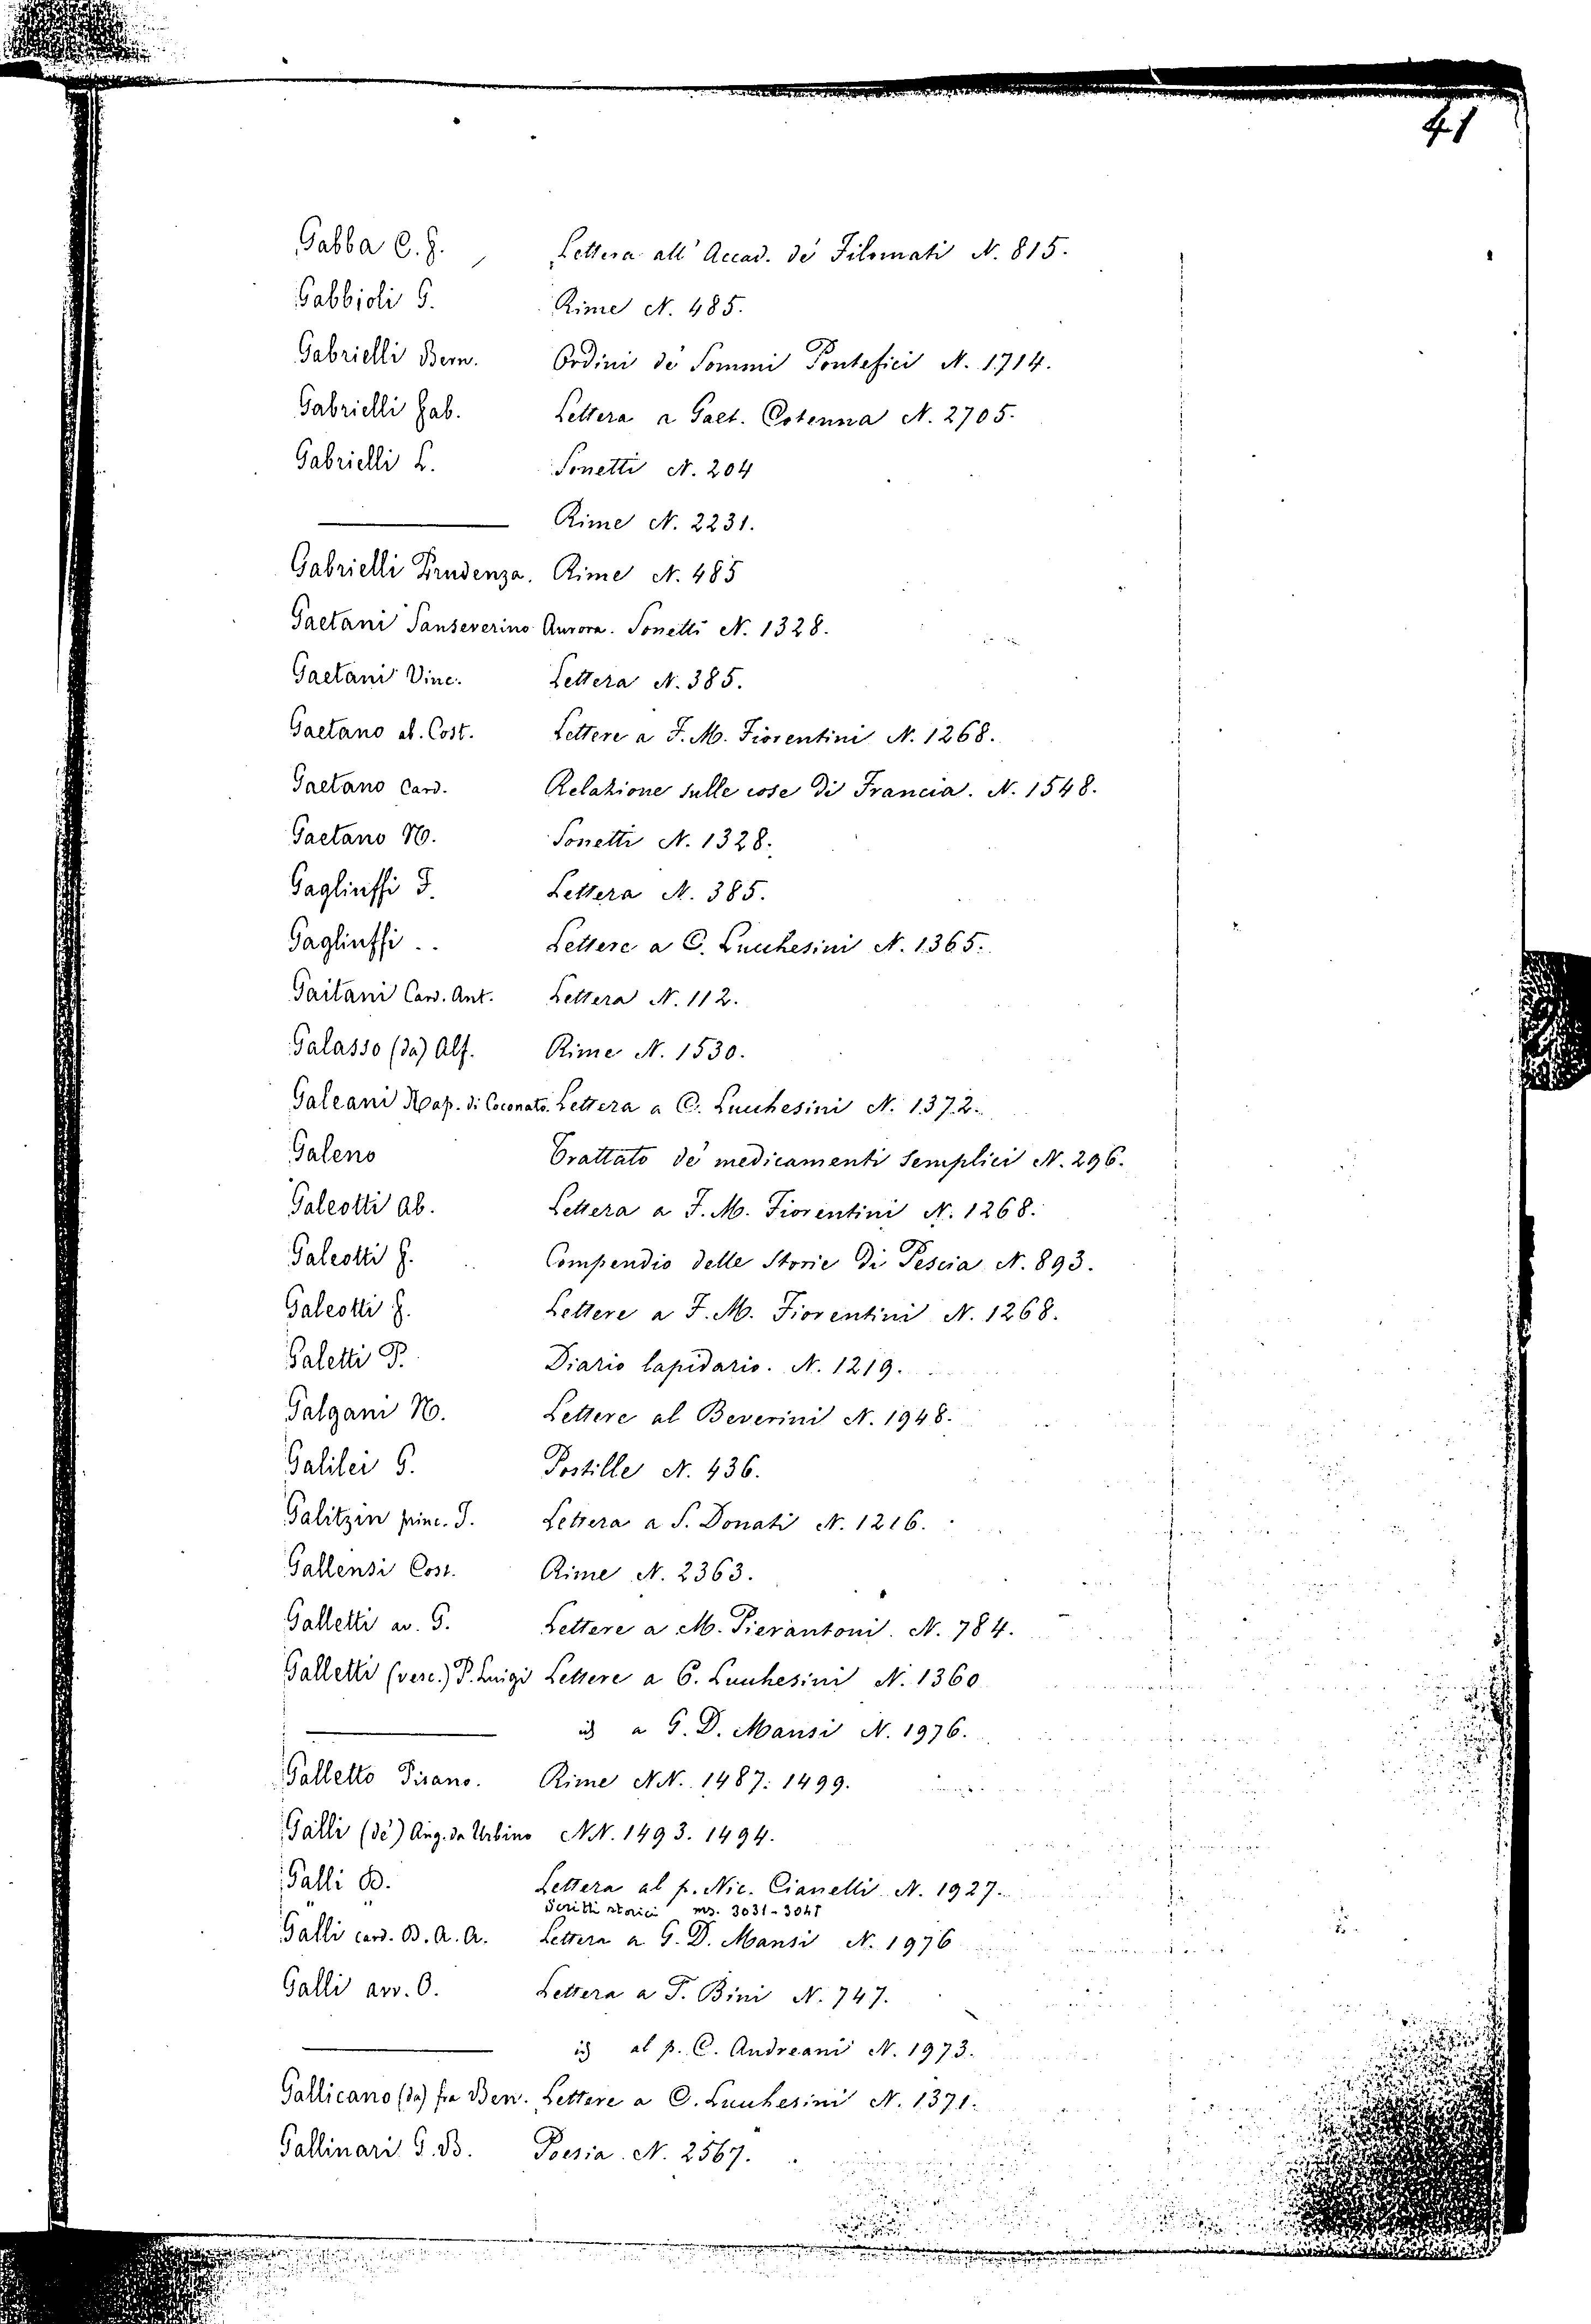 41
Gabba C. F. Lettera all' Accad. de' Filomati N. 815.
Gabbioli G. Rime N. 485.
Gabrielli Bern. Ordini de' Sommi Pontefici N. 1714.
Gabrielli Gab. Lettera a Gaet. Cotenna N. 2705.
Gabrielli L. Sonetti N. 204
Rime N. 2231.
Gabrielli Prudenza. Rime N. 485
Gaetani Sanseverino Aurora. Sonetti N. 1328.
Gaetani Vinc. Lettera N. 385.
Gaetano ab. Cost. Lettere a F. M. Fiorentini N. 1268.
Gaetano Card. Relazione sulle cose di Francia. N. 1548.
Gaetano N. Sonetti N. 1328.
Gagliuffi F. Lettera N. 385.
Gagliuffi .. Lettere a C. Lucchesini N. 1365.
Gaitani Card. Ant. Lettera N. 112.
Galasso (da) Alf. Rime N. 1530.
Galeani Nap. di Coconato. Lettera a C. Lucchesini N. 1372.
Galeno Trattato de' medicamenti semplici N. 296.
Galeotti Ab. Lettera a F. M. Fiorentini N. 1268.
Galeotti F. Compendio delle Storie di Pescia N. 893.
Galeotti F. Lettere a F. M. Fiorentini N. 1268.
Galetti P. Diario lapidario. N. 1219.
Galgani N. Lettere al Beverini N. 1948.
Galilei G. Postille N. 436.
Galitzin princ. T. Lettera a S. Donati N. 1216.
Gallensi Cost. Rime N. 2363.
Galletti av. G. Lettere a M. Pierantoni. N. 784.
Galletti (vesc.) P. Luigi Lettere a C. Lucchesini N. 1360
id a G. D. Mansi N. 1976.
Galletto Pisano. Rime NN. 1487. 1499.
Galli (de') Ang. da Urbino NN. 1493. 1494.
Galli B. Lettera al p. Nic. Cianelli N. 1927.
" " Scritti storici ms. 3031-3048
Galli card. B. A. A. Lettera a G. D. Mansi N. 1976
Galli avv. O. Lettera a T. Bini N. 747.
id al p. C. Andreani N. 1973.
Gallicano (da) fra Ben. Lettere a C. Lucchesini N. 1371.
Gallinari G. B. Poesia N. 2567.